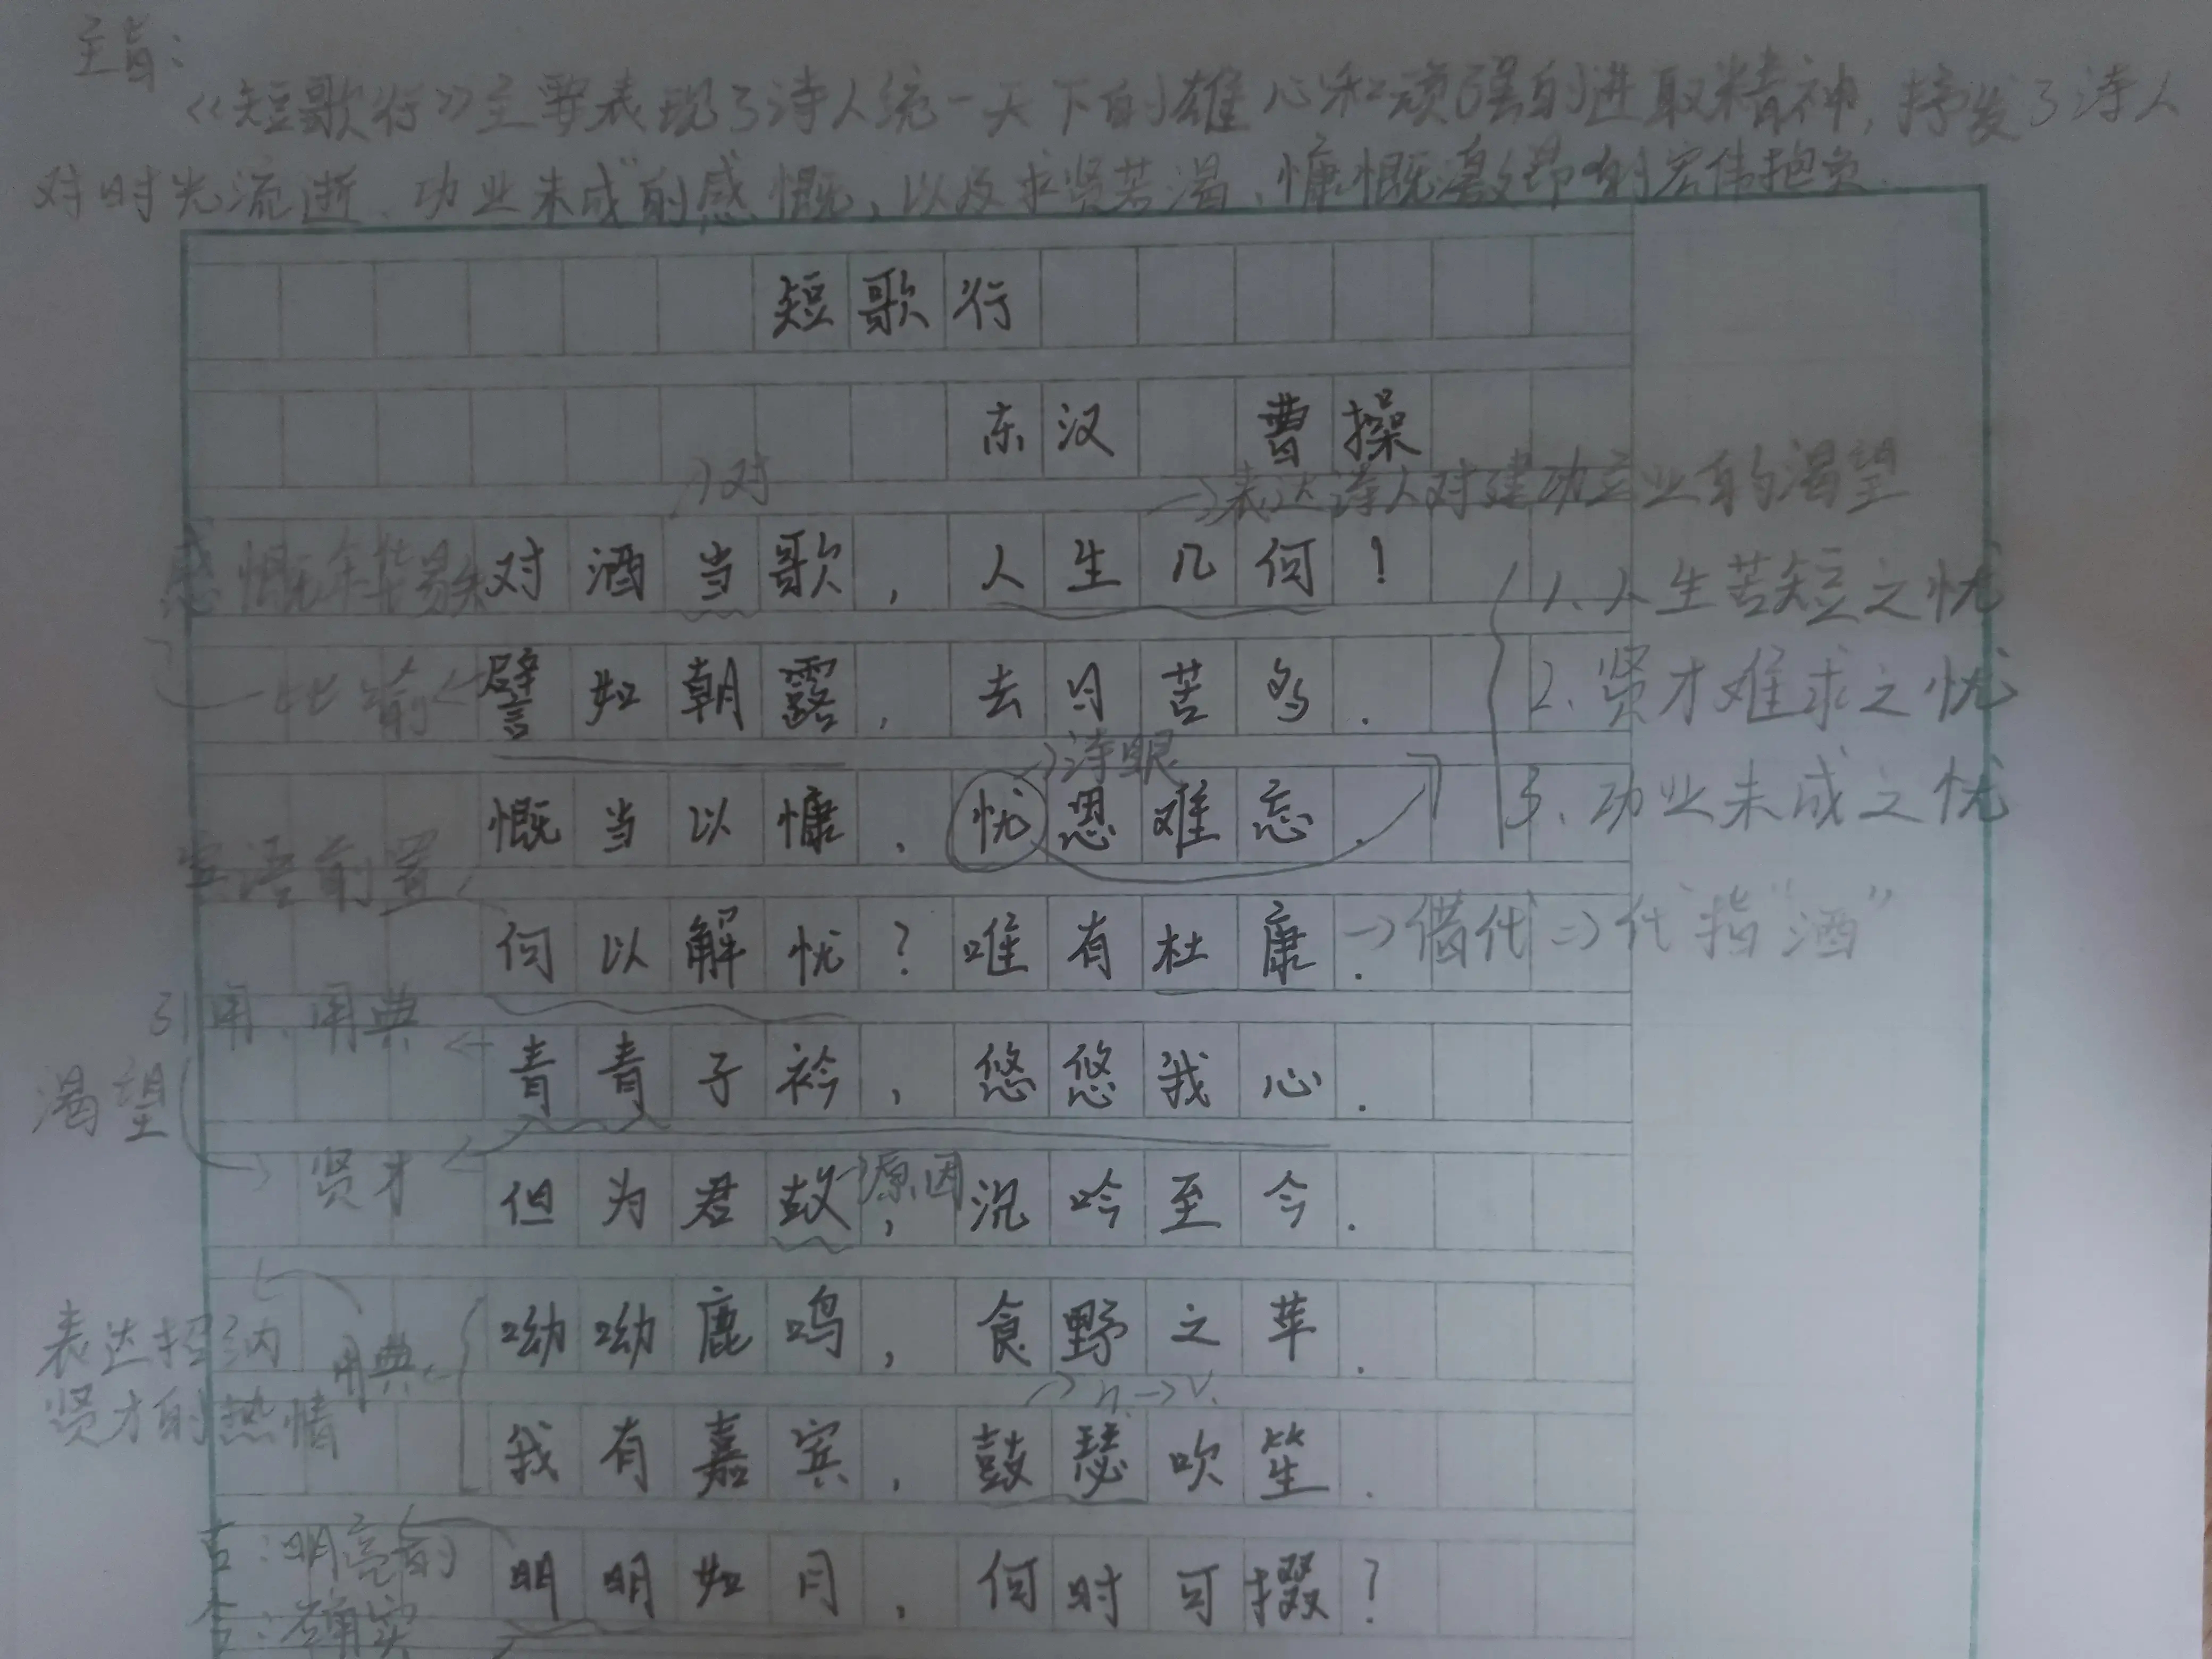 主旨：
《短歌行》主要表现了诗人统一天下的雄心和顽强的进取精神，抒发了诗人
对时光流逝、功业未成的感慨，以及求贤若渴、慷慨激昂的宏伟抱负.
短歌行
东汉 曹操
→对
→表达诗人对建功立业的渴望
感慨年华易失
对酒当歌，人生几何！
1、人生苦短之忧
比喻←
譬如朝露，去日苦多.
2、贤才难求之忧
→诗眼
慨当以慷，忧思难忘.
3、功业未成之忧
宾语前置
何以解忧？唯有杜康.
→借代⇒代指“酒”
引用、用典←
青青子衿，悠悠我心.
渴望
→贤才←
但为君故，沉吟至今.
→原因
呦呦鹿鸣，食野之苹.
表达招纳
用典←
贤才的热情
→n.→v.
我有嘉宾，鼓瑟吹笙.
古：明亮的
明明如月，何时可掇？
今：确实